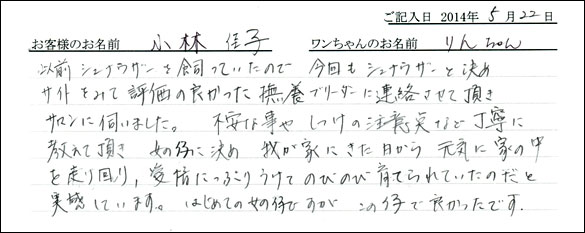 ご記入日 2014年 5月22日
お客様のお名前 小林 佳子 ワンちゃんのお名前 りんちゃん
以前シュナウザーを飼っていたので 今回もシュナウザーと決め
サイトをみて評価の良かった撫養ブリーダーに連絡させて頂き
サロンに伺いました。 不安な事や しつけの注意点など丁寧に
教えて頂き 女の仔に決め 我が家にきた日から 元気に家の中
を走り回り、愛情たっぷりうけてのびのび育てられていたのだと
実感しています。 はじめての女の仔ですが この仔で良かったです.